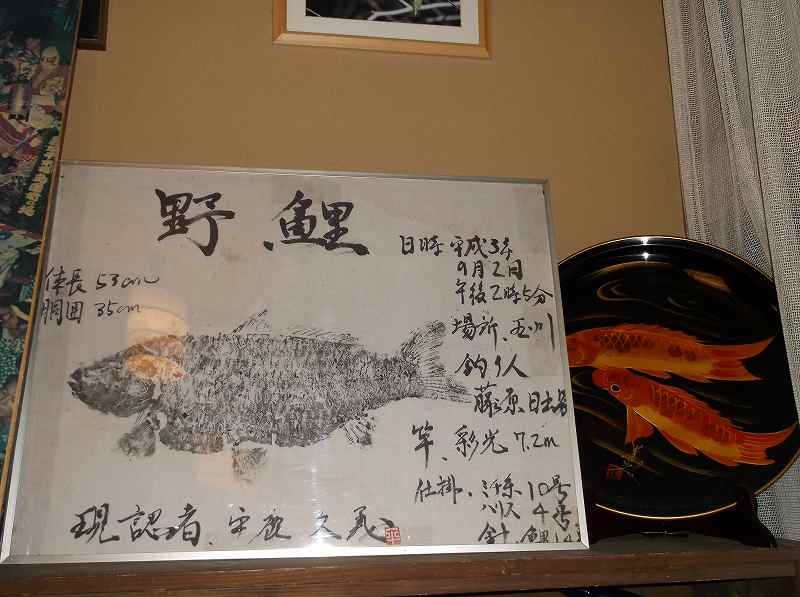 野鯉
体長 53cm
胴囲 35cm
日時 平成3年
9月2日
午後2時5分
場所、玉川
釣り人
藤原
竿、彩光 7.2m
仕掛、ミチ糸 10号
ハリス 4号
針 鯉14
現認者、
平